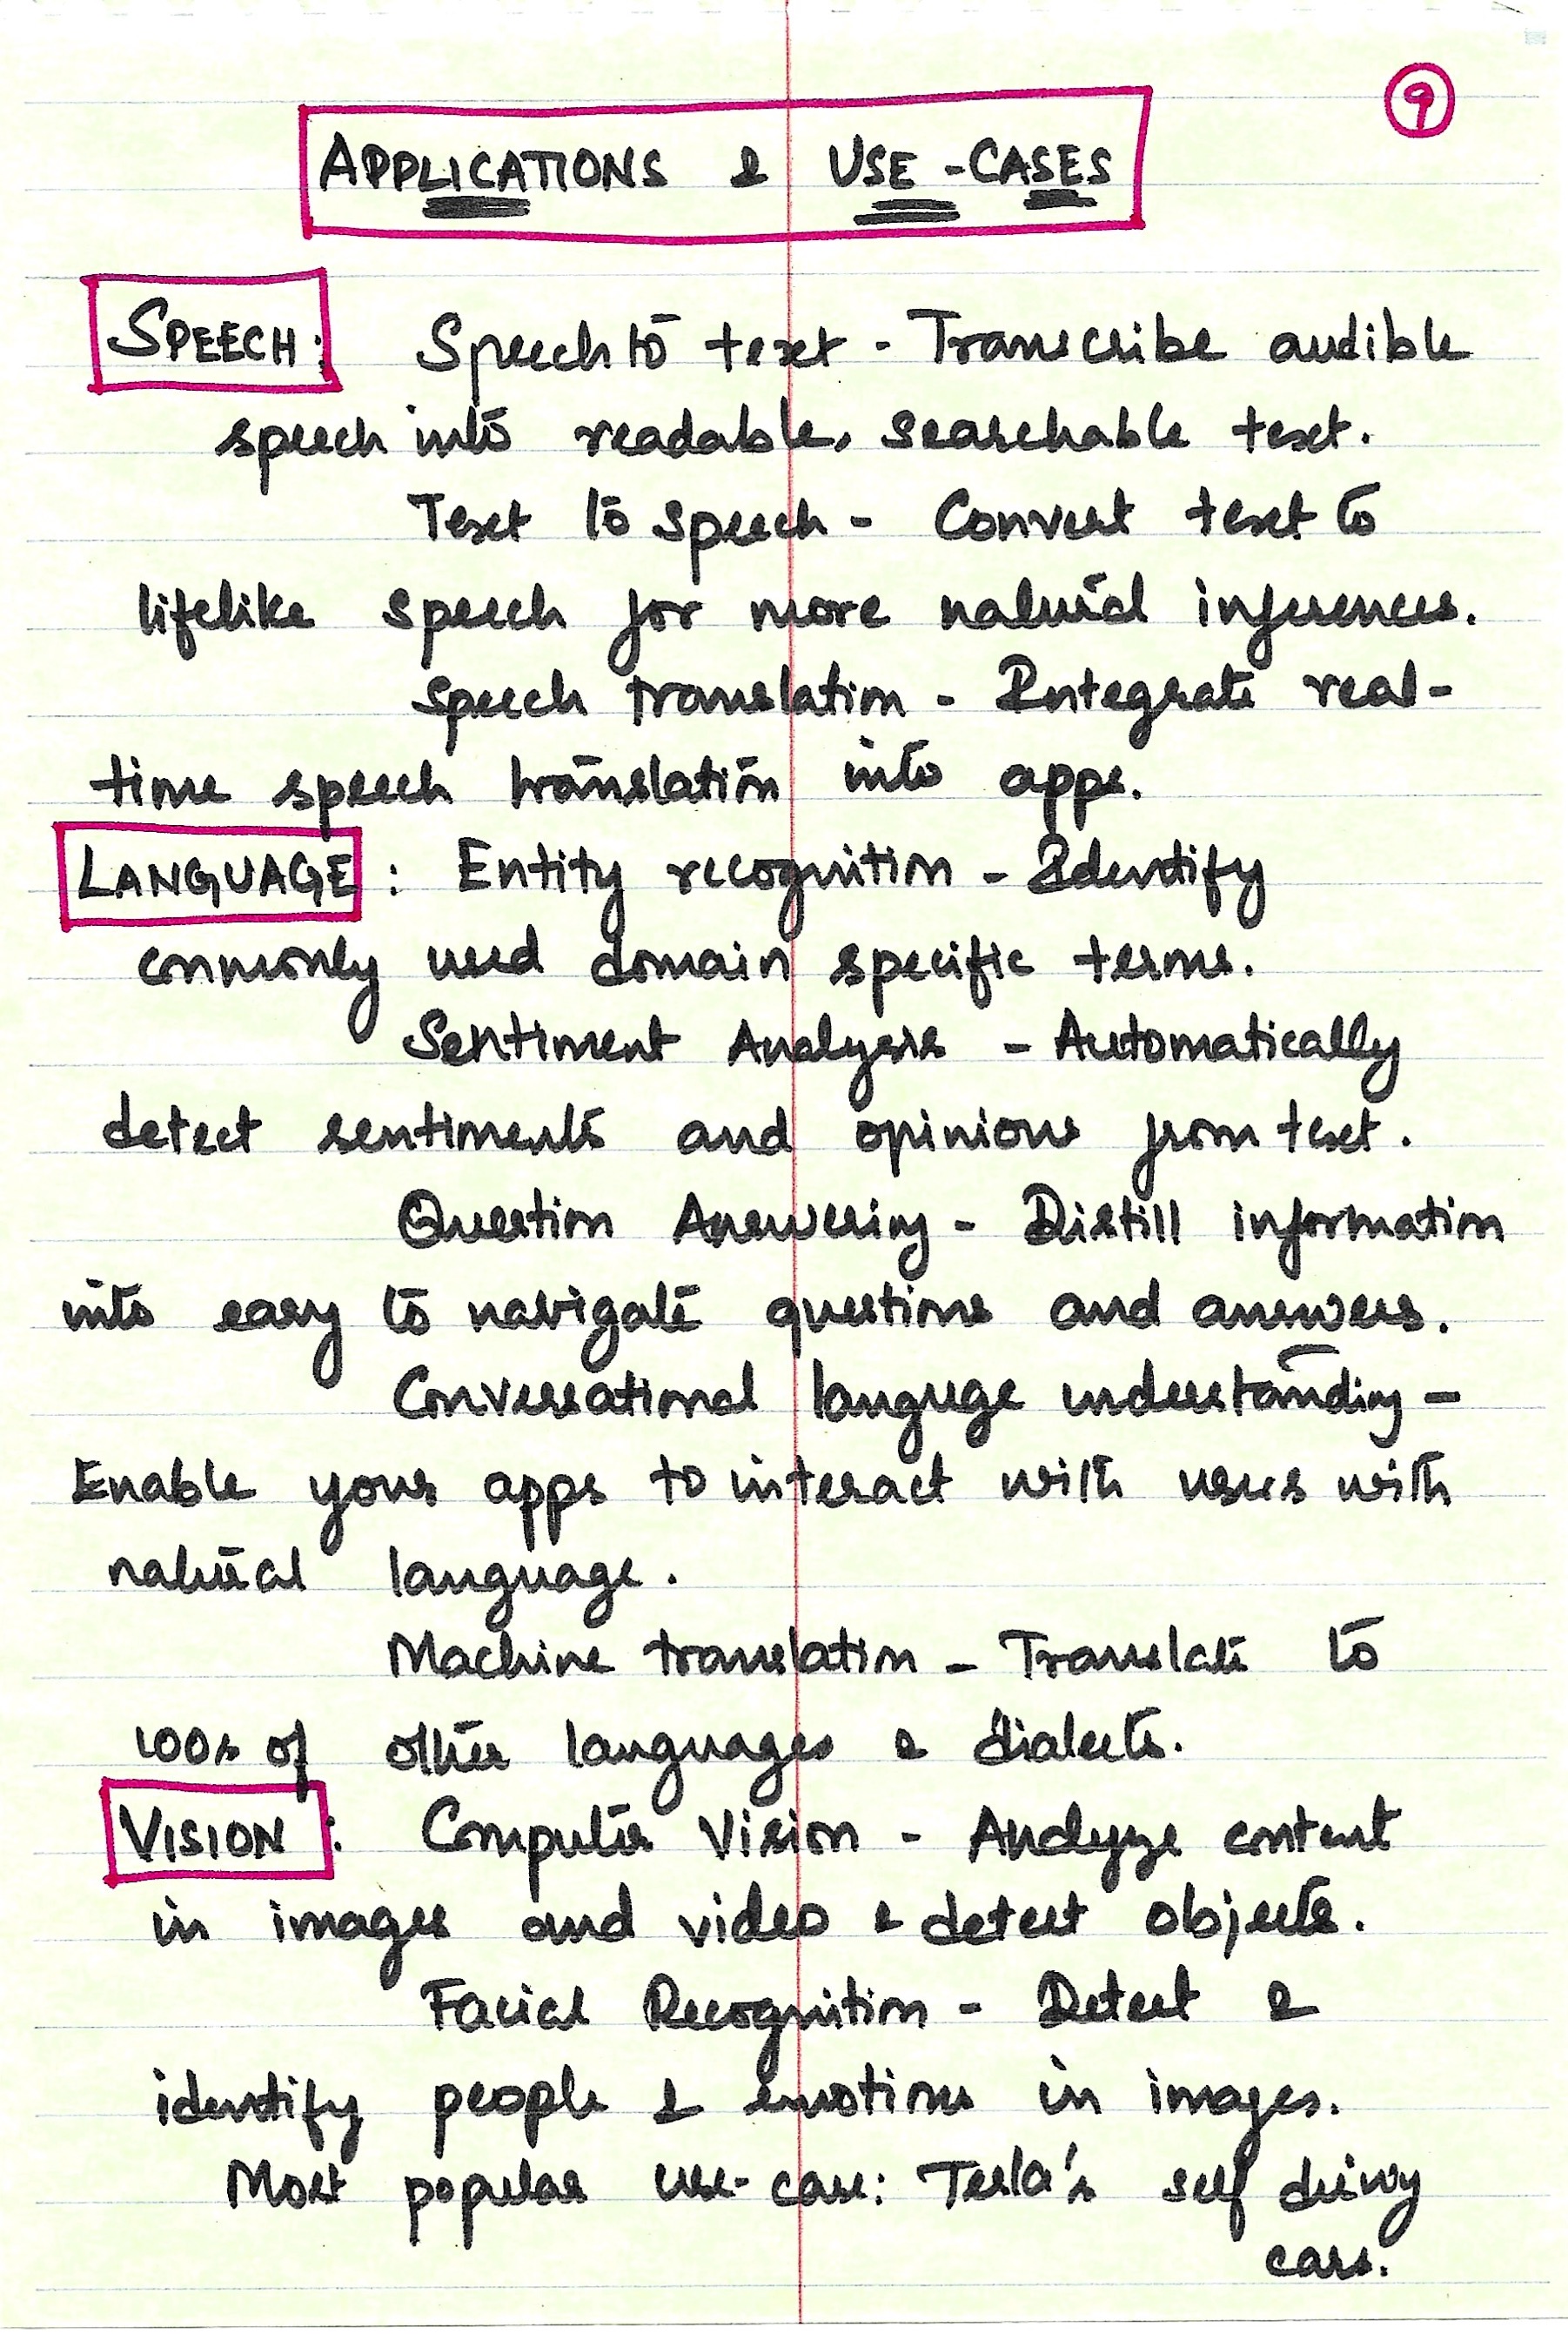 9
APPLICATIONS & USE-CASES
SPEECH: Speech to text - Transcribe audible
speech into readable, searchable text.
Text to speech - Convert text to
lifelike speech for more natural inferences.
Speech translation - Integrate real-
time speech translation into apps.
LANGUAGE: Entity recognition - Identify
commonly used domain specific terms.
Sentiment Analysis - Automatically
detect sentiments and opinions from text.
Question Answering - Distill information
into easy to navigate questions and answers.
Conversational languge understanding -
Enable your apps to interact with users with
natural language.
Machine translation - Translate to
100s of other languages & dialects.
VISION: Computer Vision - Analyze content
in images and video & detect objects.
Facial Recognition - Detect &
identify people & emotions in images.
Most popular use-case: Tesla's self driving
cars.